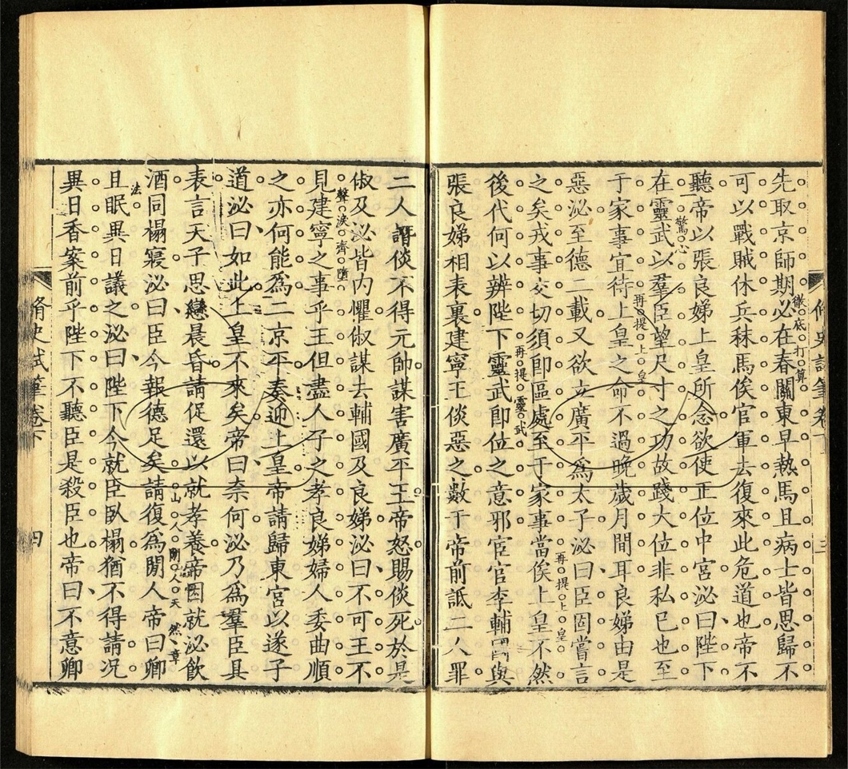 先取京師期必在春關東早熱馬且病士皆思歸不
徹底打算
可以戰賊休兵秣馬俟官軍去復來此危道也帝不
聽帝以張良娣上皇所念欲使正位中宮泌曰陛下
一驚心
在靈武以羣臣望尺寸之功故踐大位非私已也至
于家事宜待上皇之命不過晚歲月間耳良娣由是
再提上皇
惡泌至德二載又欲立廣平爲太子泌曰臣固嘗言
再提上皇
之矣戎事交切須卽區處至于家事當俟上皇不然
後代何以辨陛下靈武卽位之意邪宦官李輔國與
再提靈武
張良娣相表裏建寧王倓惡之數于帝前詆二人罪
脩史試筆卷下
三
二人譖倓不得元帥謀害廣平王帝怒賜倓死於是
俶及泌皆内懼俶謀去輔國及良娣泌曰不可王不
聲淚齊墮
見建寧之事乎王但盡人子之孝良娣婦人委曲順
之亦何能爲二京平奏迎上皇帝請歸東宮以遂子
道泌曰如此上皇不來矣帝曰奈何泌乃爲羣臣具
表言天子思戀晨昏請促還以就孝養帝因就泌飲
酒同榻寢泌曰臣今報德足矣請復爲閒人帝曰卿
山人
人天然章
法
且眠異日議之泌曰陛下今就臣臥榻猶不得請况
異日香案前乎陛下不聽臣是殺臣也帝曰不意卿
脩史試筆卷下
四